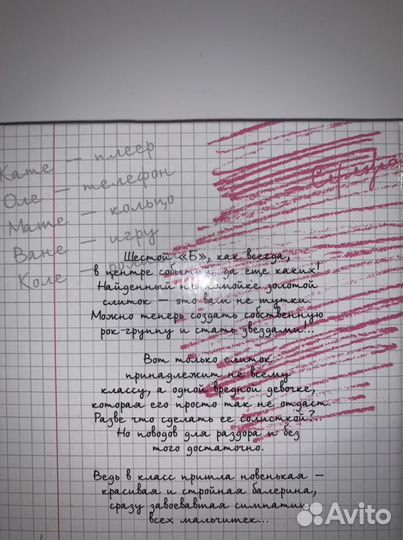 Кате — плеер
Оле — телефон
Мате — кольцо
Ване — игру
Коле —
Шестой «Б», как всегда,
в центре событий, да еще каких!
Найденный на помойке золотой
слиток — это вам не шутки.
Можно теперь создать собственную
рок-группу и стать звездами!..
Вот только слиток
принадлежит не всему
классу, а одной вредной девочке,
которая его просто так не отдаст.
Разве что сделать ее солисткой?..
Но поводов для раздора и без
того достаточно.
Ведь в класс пришла новенькая —
красивая и стройная балерина,
сразу завоевавшая симпатии
всех мальчишек...
Avito